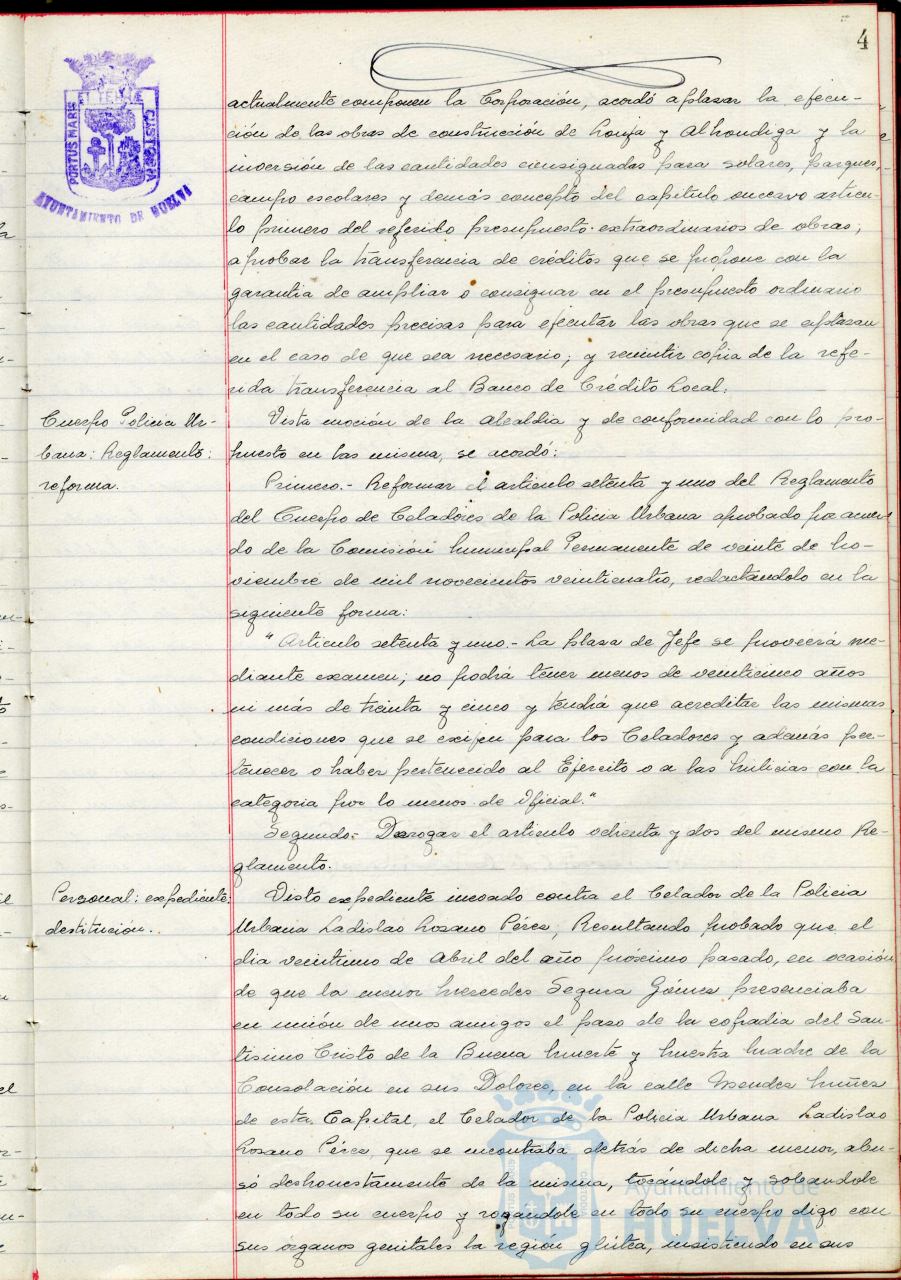 4
PORTUS MARIS ET TERRAE CUSTODIA
AYUNTAMIENTO DE HUELVA
actualmente componen la Corporación, acordó aplasar la ejecu-
ción de las obras de construcción de Lonja y Alhondiga y la
inversión de las cantidades consignadas para solares, parques,
campo escolares y demás concepto del capitulo onceavo articu-
lo primero del referido presupuesto extraordinarios de obras;
aprobar la transferencia de créditos que se propone con la
garantia de ampliar o consignar en el presupuesto ordinario
las cantidades precisas para ejecutar las obras que se aplasan
en el caso de que sea necesario; y remitir copia de la refe-
rida transferencia al Banco de Crédito Local.
Cuerpo Policia Ur-
bana: Reglamento:
reforma.
Vista moción de la Alcaldia y de conformidad con lo pro-
puesto en las misma, se acordó:
Primero.- Reformar el articulo setenta y uno del Reglamento
del Cuerpo de Celadores de la Policia Urbana aprobado por acuer-
do de la Comisión Municipal Permanente de veinte de No-
viembre de mil novecientos veinticuatro, redactandolo en la
siguiente forma:
"Articulo setenta y uno.- La plasa de Jefe se proveerá me-
diante examen; no podrá tener menos de veinticinco años
ni más de treinta y cinco y tendrá que acreditar las mismas
condiciones que se exijen para los Celadores y además per-
tenecer o haber pertenecido al Ejercito o a las Milicias con la
categoria por lo menos de Oficial."
Segundo.- Derogar el articulo ochenta y dos del mismo Re-
glamento.
Personal: expediente:
destitución.
Visto expediente incoado contra el Celador de la Policia
Urbana Ladislao Losano Pérez; Resultando probado que el
dia veintiuno de Abril del año próximo pasado, en ocasión
de que la menor Mercedes Segura Gómes presenciaba
en unión de unos amigos el paso de la cofradia del San-
tisimo Cristo de la Buena Muerte y Nuestra Madre de la
Consolación en sus Dolores, en la calle Mendez Nuñez
de esta Capital, el Celador de la Policia Urbana Ladislao
Losano Pérez, que se encontraba detrás de dicha menor, abu-
só deshonestamente de la misma, tocándole y sobandole
en todo su cuerpo y rozandole en todo su cuerpo digo con
sus órganos genitales la región glútea, insistiendo en sus
Ayuntamiento de
HUELVA